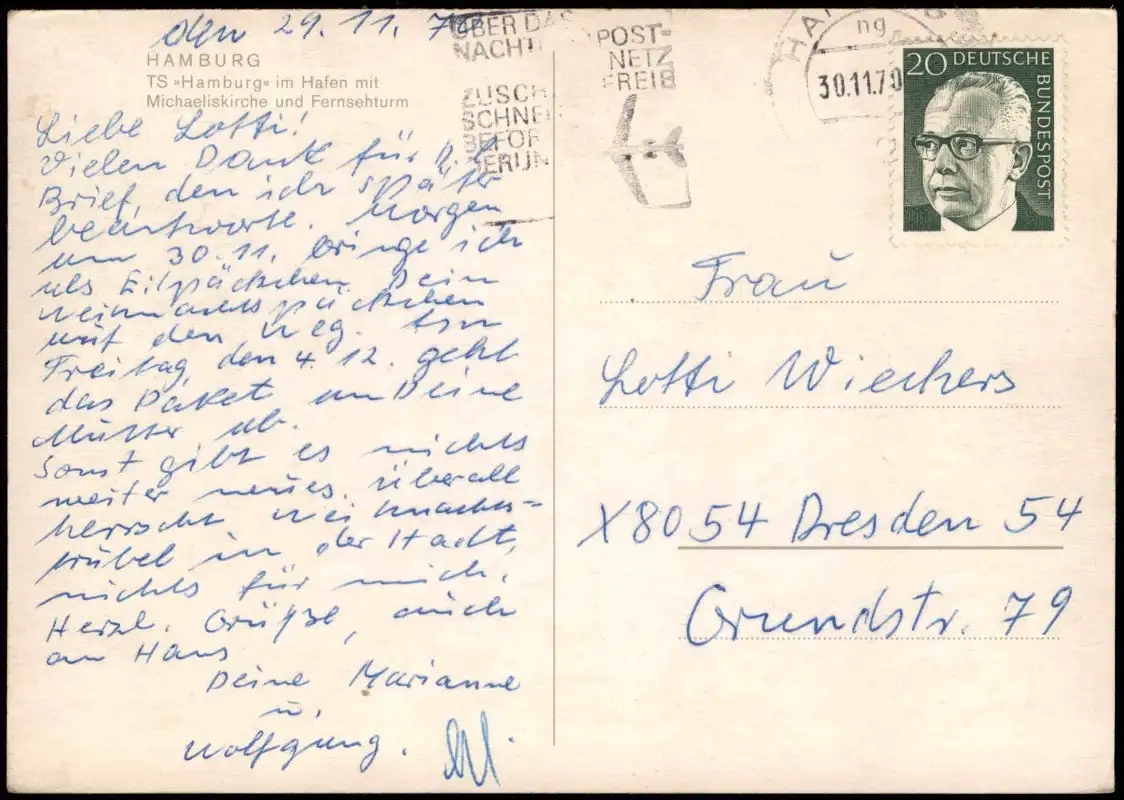 den 29.11.70
HAMBURG
TS »Hamburg« im Hafen mit
Michaeliskirche und Fernsehturm
Liebe Lotti!
Vielen Dank für
Brief, den ich später
beantworte. Morgen
am 30.11. bringe ich
als Eilpäckchen Dein
Weihnachtspäckchen
auf den Weg. Am
Freitag den 4.12. geht
das Paket an Deine
Mutter ab.
Sonst gibt es nichts
weiter neues. Überall
herrscht Weihnachts-
trubel in der Stadt,
nichts für mich.
Herzl. Grüße, auch
an Hans
Deine Marianne
u.
Wolfgang.
ÜBER DAS
NACHTL POST-
NETZ
FREIB
ZUSCH
SCHNE
BEFÖR
BERLIN
HA G
ng
30.11.70
20 DEUTSCHE
BUNDESPOST
Frau
Lotti Wiechers
X8054 Dresden 54
Grundstr. 79